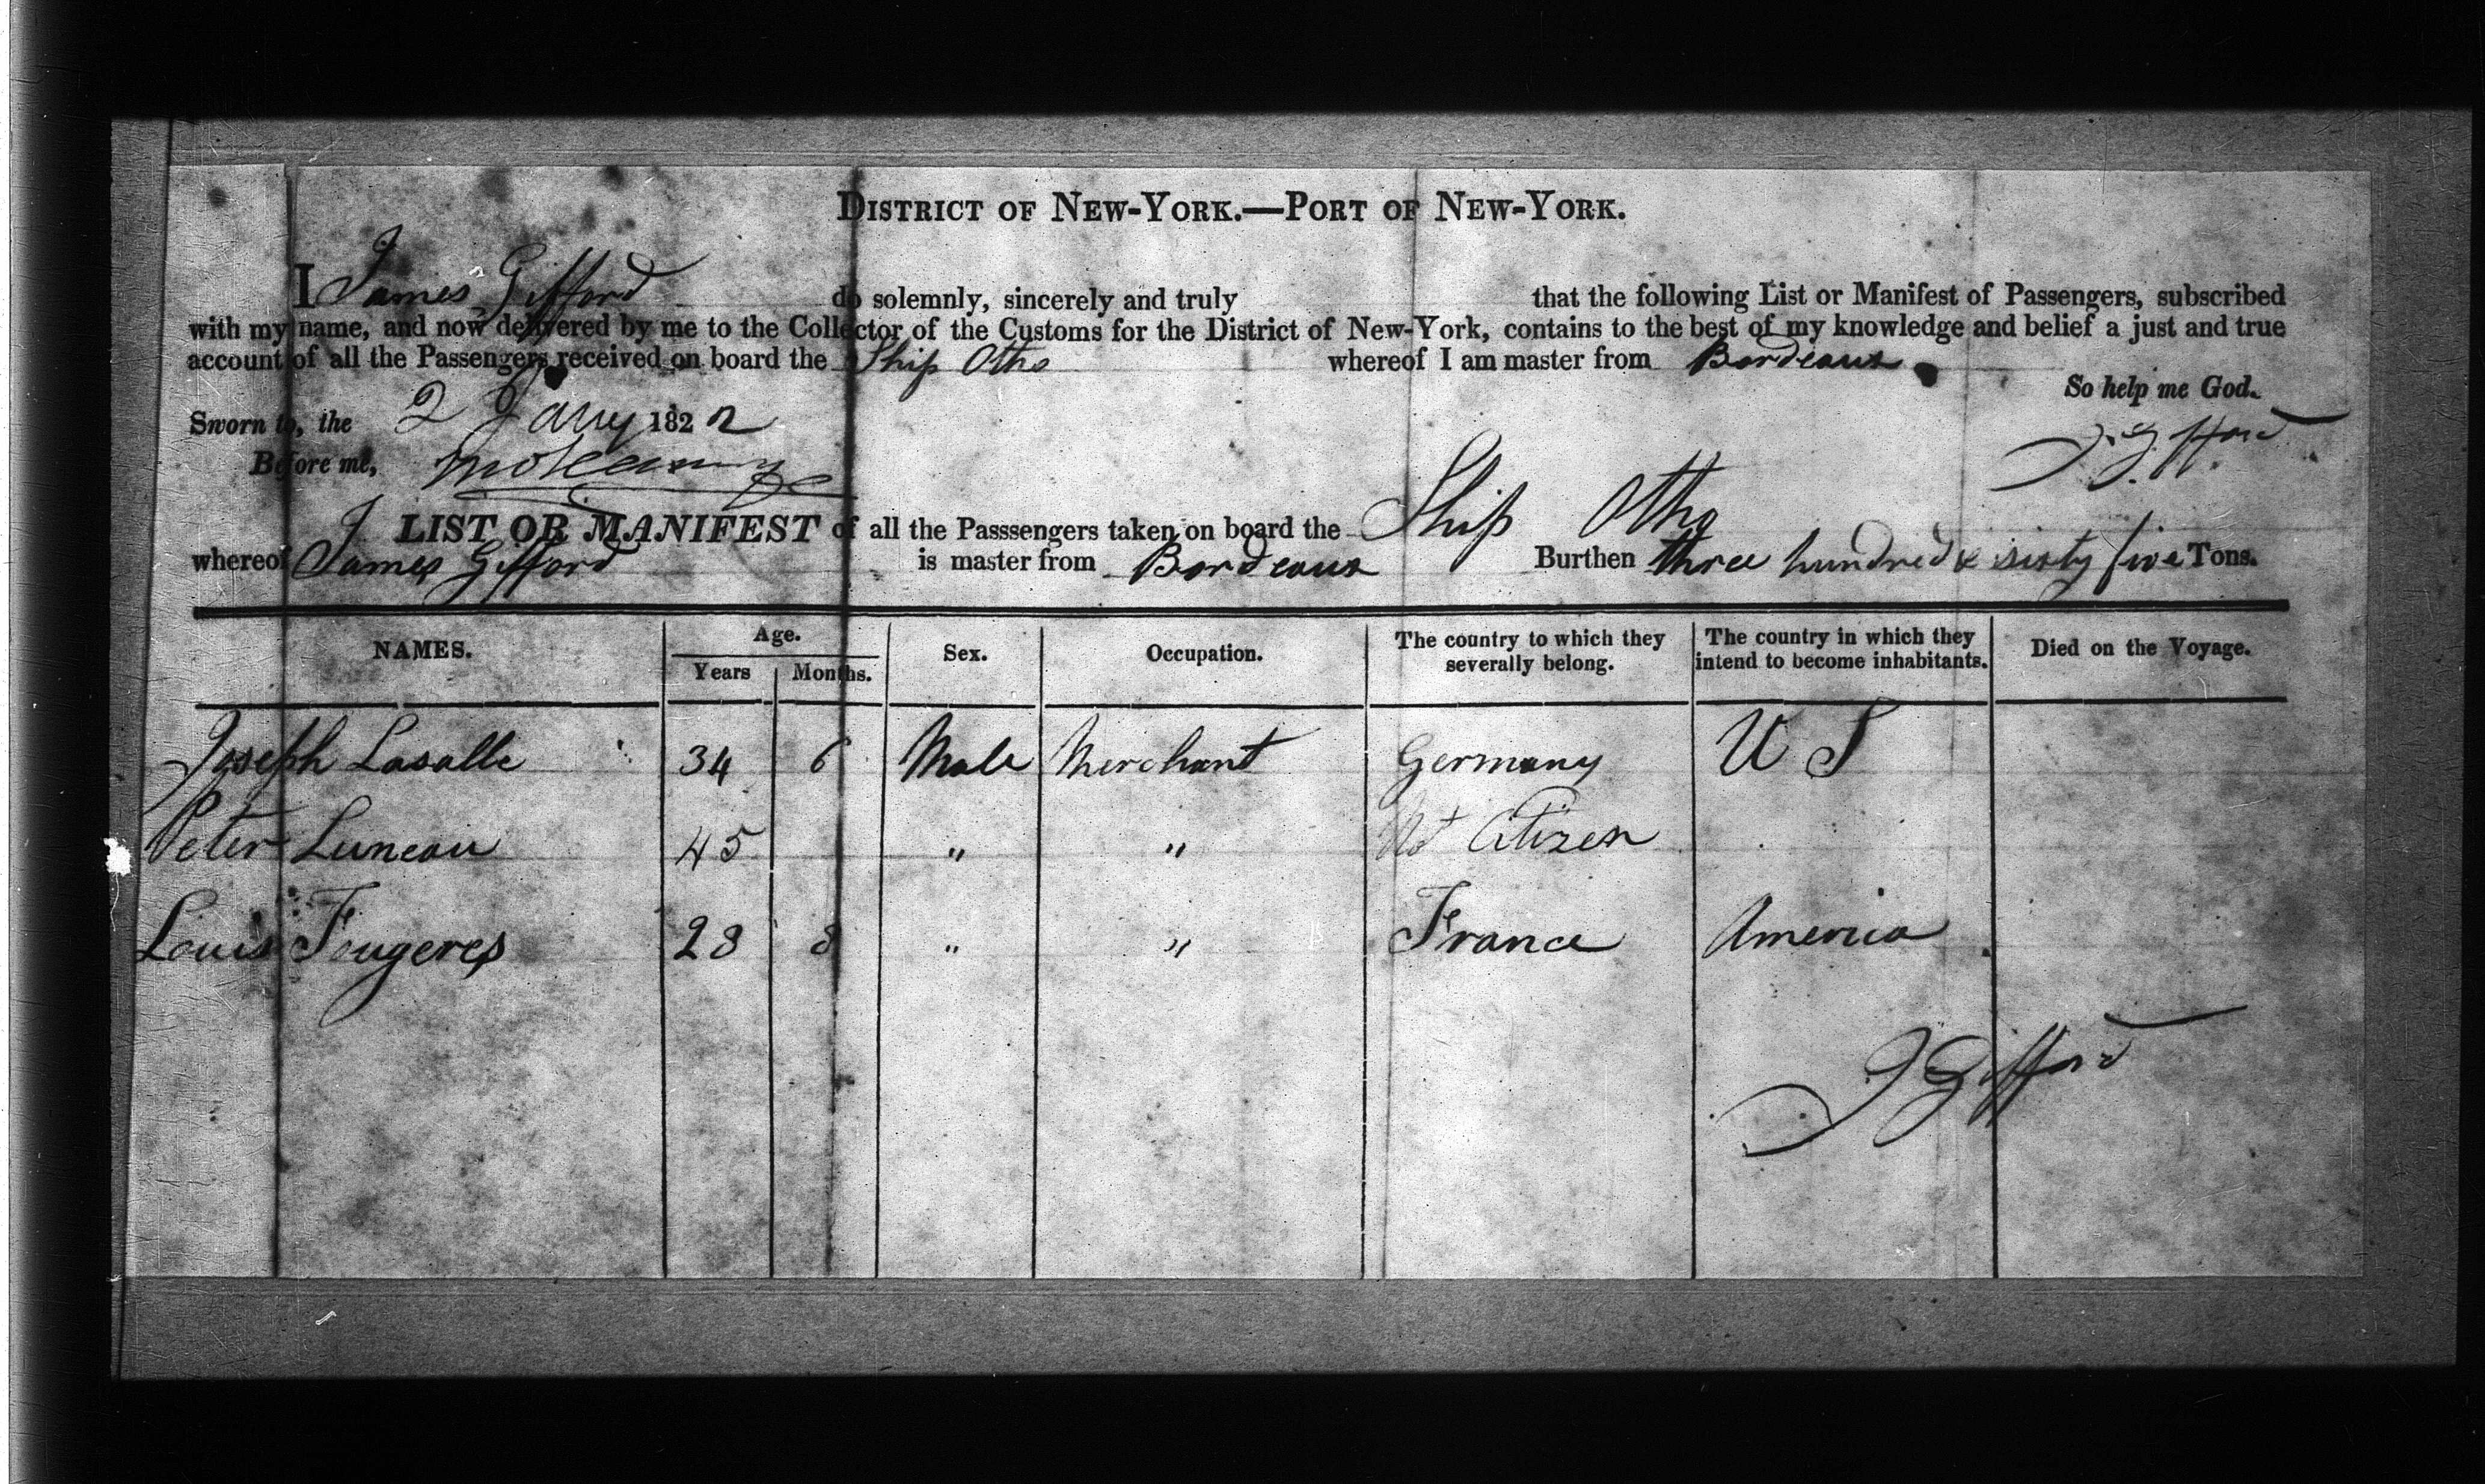 DISTRICT OF NEW-YORK.—PORT OF NEW-YORK.
I James Gifford do solemnly, sincerely and truly that the following List or Manifest of Passengers, subscribed
with my name, and now delivered by me to the Collector of the Customs for the District of New-York, contains to the best of my knowledge and belief a just and true
account of all the Passengers received on board the Ship Otho whereof I am master from Bordeaux
So help me God.
Sworn to, the 2 Jany 1822 J. Gifford
Before me,
LIST OR MANIFEST of all the Passsengers taken on board the Ship Otho
whereof James Gifford is master from Bordeaux Burthen three hundred & sixty five Tons.
NAMES. Age. Years Months. Sex. Occupation. The country to which they severally belong. The country in which they intend to become inhabitants. Died on the Voyage.
Joseph Lasalle 34 6 Male Merchant Germany U S
Peter Luneau 45 " " Citizen
Louis Fougeres 28 8 " " France America
J Gifford